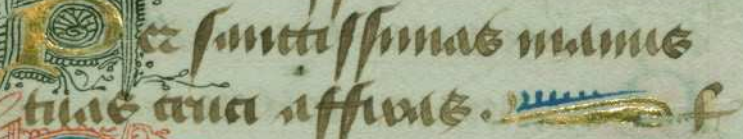 Per sanctissimas manus
tuas cruci affixas.